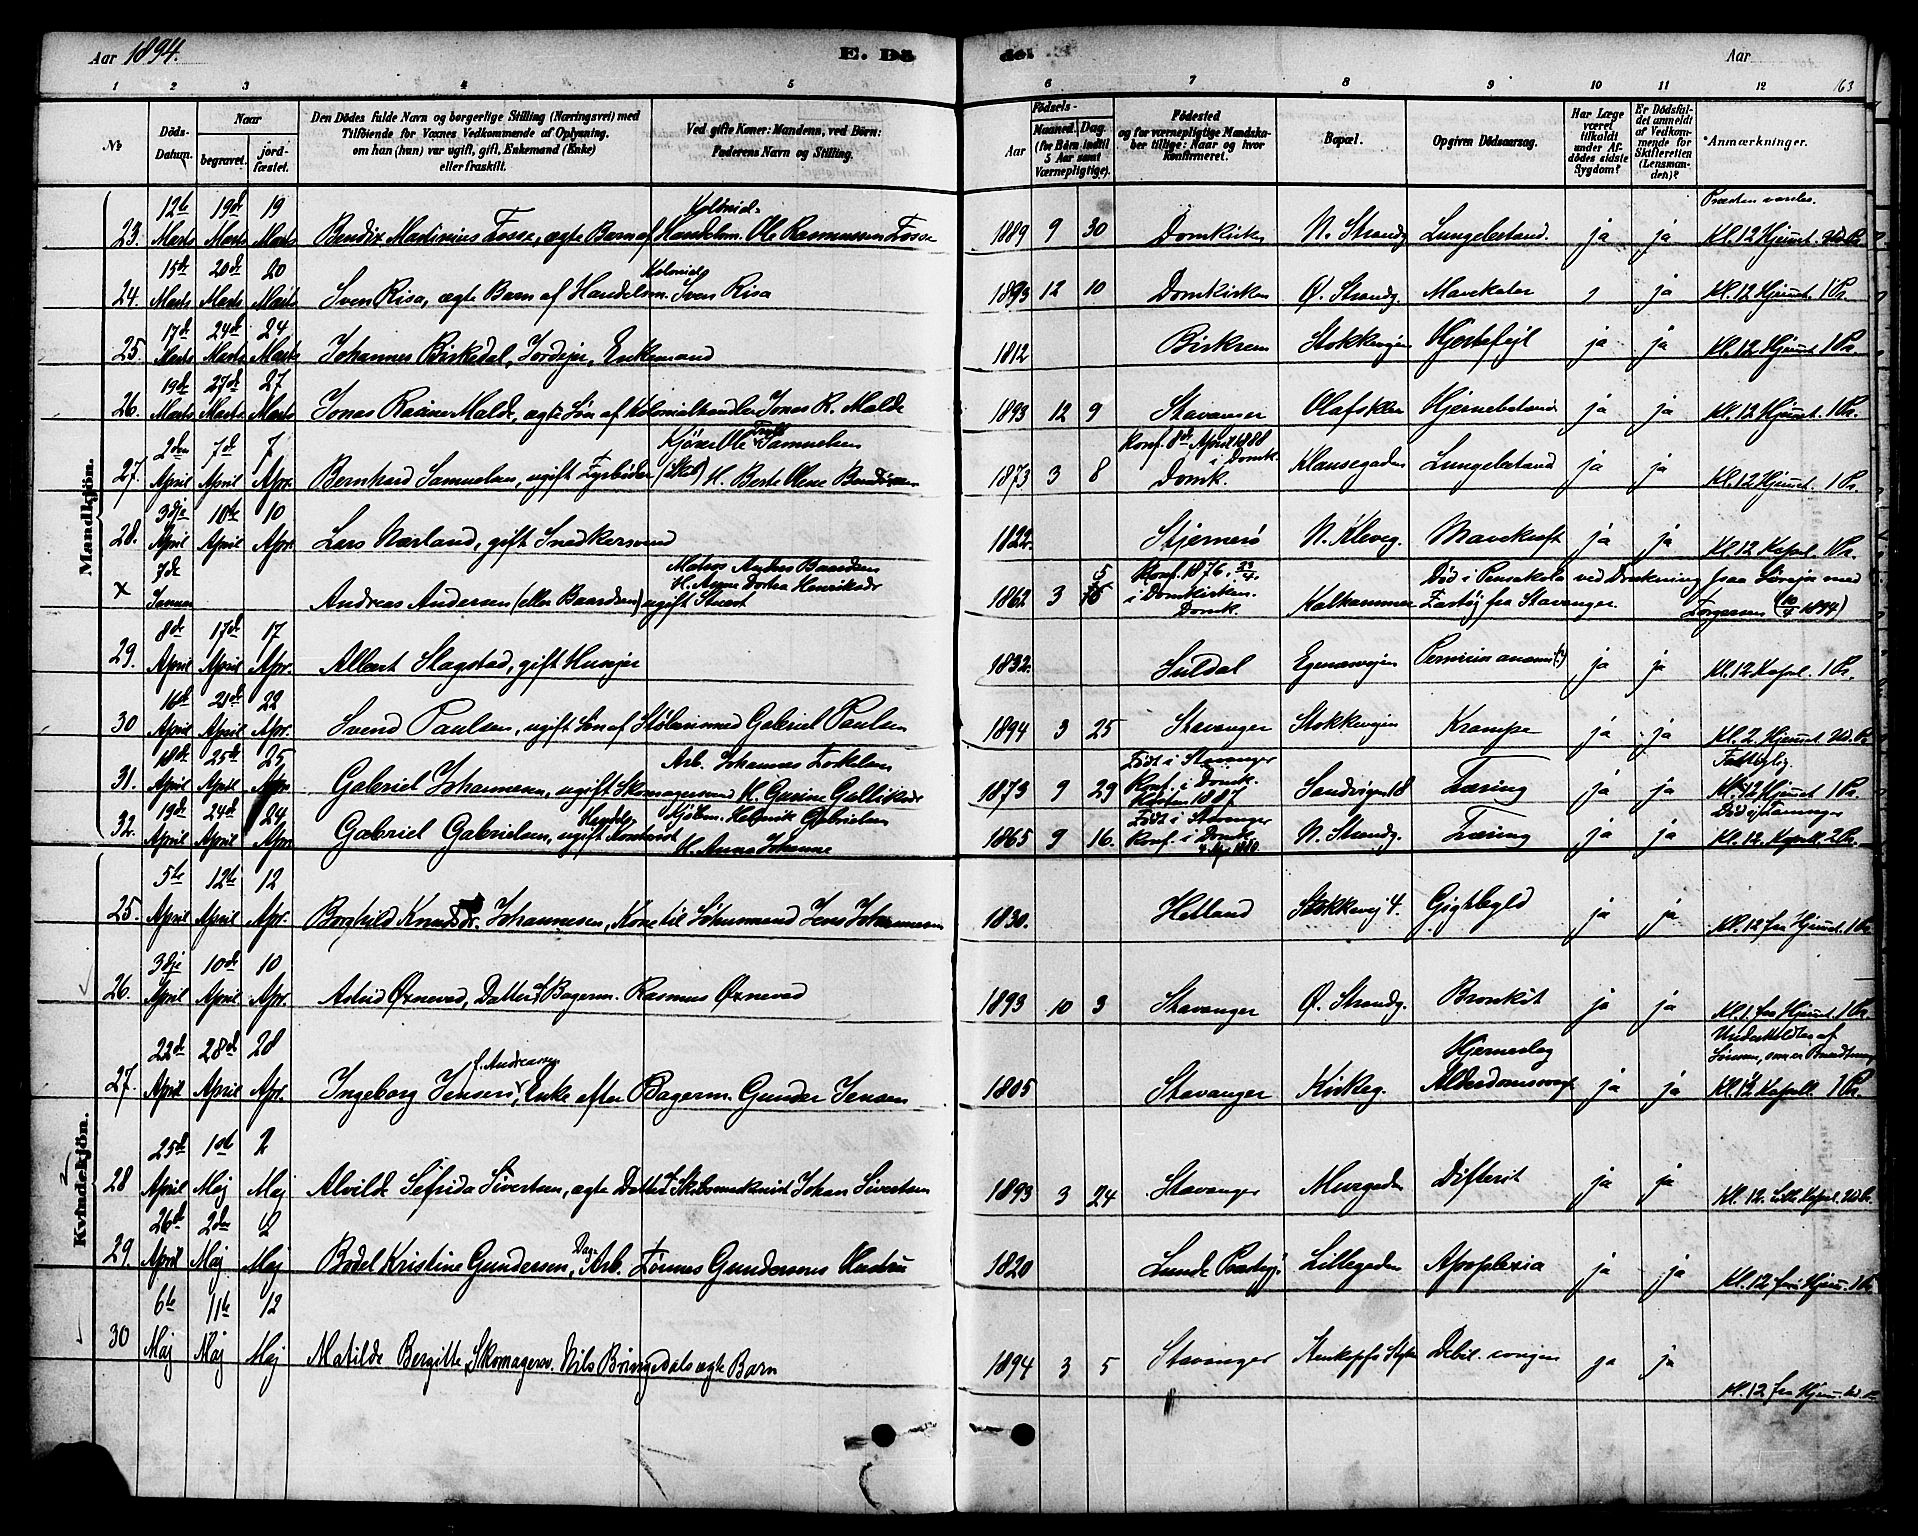 Aar 1894.
E. Dö
de.
Aar
163
1 2 3 4 5 6 7 8 9 10 11 12
No
Döds-Datum.
Naar
begravet.
jord-fæstet.
Den Dödes fulde Navn og borgerlige Stilling (Næringsvei) med
Tilföiende for Voxnes Vedkommende af Oplysning,
om han (hun) var ugift, gift, Enkemand (Enke)
eller fraskilt.
Ved gifte Koner: Mandens, ved Börn:
Faderens Navn og Stilling.
Födsels-
Aar
Maaned. Dag.
(for Börn indtil
5 Aar samt
Værnepligtige).
Födested
og for værnepligtige Mandska-
ber tillige: Naar og hvor
konfirmeret.
Bopæl.
Opgiven Dödsaarsag.
Har Læge
været
tilkaldt
under Af-
dödes sidste
Sygdom?
Er Dödsfal-
det anmeldt
af Vedkom-
mende for
Skifteretten
(Lensman-
den)?
Anmærkninger.
Mandkjön.
23. 12te Marts 19de Marts 19 Marts Bendix Martinius Fosse, ægte Barn af Kolonial-Handelsm. Ole Rasmussen Fosse 1889 9 30 Domkirken N. Strandg. Lungebetænd. ja ja Kl. 12 Hjemmet.
24. 15de Marts 20de Marts 20 Marts Sven Risa, ægte Barn af Kolonial Handelsm. Sven Risa 1893 12 10 Domkirken Ø. Strandg. Mavekatar ja Kl. 12 Hjemmet. 1 Pr.
25. 17de Marts 24de Marts 24 Marts Johannes Birkedal, Jordejer, Enkemand 1812 Birkrem Stokkevejen Hjertefejl ja ja Kl. 12 Hjemmet 1 Pr.
26. 19de Marts 27de Marts 27 Marts Jonas Malde, ægte Søn af Kolonialhandler Jonas R. Malde 1893 12 9 Stavanger Olafskleven Hjernebetænd ja ja Kl. 12 Hjemmet. 1 Pr.
27. 2den April 7de April 7 Apr. Bernhard Samuelsen, ugift Fyrbøder Ole Samuelsen H. Berte Olene 1873 3 8 Konf. 8de April 1888 i Domk. Domk. Klausegaden Lungebetænd ja ja Kl. 12 Hjemmet. 1 Pr.
28. 3dje April 10de April 10 Apr. Lars Nærland, gift Snedkersvend 1822 Stjernerø N. Kleveg. Mavekræft ja ja Kl. 12 Kapel. 1 Pr.
x 7de Januar Andreas Andersen (eller Baardsen) ugift Stuert Matros Anders Baardsen H. Anne Dortea Henriksdr 1862 3 5 Konf. 1876 i Domkirken. Domk. Kalhammer Død i Pensakola ved Drukning fra Fartøj fra Stavanger.
29. 8de April 17de April 17 Apr. Albert Slagstad, gift Husejer 1832. Suldal Egenæsvejen ja ja Kl. 12 Kapel. 1 Pr.
30 16de April 21de April 22 Apr. Svend Paulsen, ugift Søn af Gabriel Paulsen 1894 3 25 Stavanger Stokkevejen Krampe ja ja Kl. 2. Hjemmet
31. 18de April 25de April 25 Apr Gabriel Johannesen, ugift Skomagersvend Arb. Johannes Torkelsen 1873 9 29 Født i Stavanger Konf. i Domk. 1887 Sandvigen 18 Tæring ja ja Fattiglig. Kl. 12 Hjemmet 1 Pr.
32. 19de April 24de April 24 Apr. Gabriel Gabrielsen, ugift Kjøbm. Henrik Gabrielsen H. Anna Johanne 1865 9 16. Født i Stavanger Konf. i Domk. N. Strandg. Tæring ja ja Kl. 12. Kapell. 2 Pr.
Kvindekjön.
25. 5te April 12te April 12 Apr. Borghild Knudsdr. Johannesen, Kone til Jens Johannesen 1830. Hetland Stokkevej 4. Gigtbyld ja ja Kl. 12 fra Hjemmet. 1 Pr.
26. 3dje April 10de April 10 Apr. Astrid Øxnevad, Datter af Bagerm. Rasmus Øxnevad 1893 10 3 Stavanger Ø. Strandg. Bronkit ja ja Kl. 1. fra Hjemmet. 1 Pr.
27. 22de April 28de April 28 Apr. Ingeborg Jensen f. Andreassen, Enke efter Bagerm. Gunder Jensen 1805 Stavanger Kirkeg. Hjerneslag Alderdomssvagh. ja ja Understøttes af Sønnen, som er Kl. 12 Kapell. 1 Pr.
28 25de April 1ste Maj 2 Maj Alvilde Sefrida Sivertsen, ægte Datter af Johan Sivertsen 1893 3 24 Stavanger Murgaden Difterit ja ja Kl. 12.
29. 26de April 2den Maj 2 Maj Bodel Kristine Gundersen, Dag-Arb. Tønnes Gundersens Hustru 1820 Lunde Præstegj. Lillegaden Apoplexia ja ja Kl. 12 fra Hjem. 1 Pr.
30 6te Maj 11te Maj 12 Maj Matilde Bergitte, Skomagersv. Nils Bringedals ægte Barn 1894 3 5 Stavanger ja ja Kl. 12 fra Hjem.